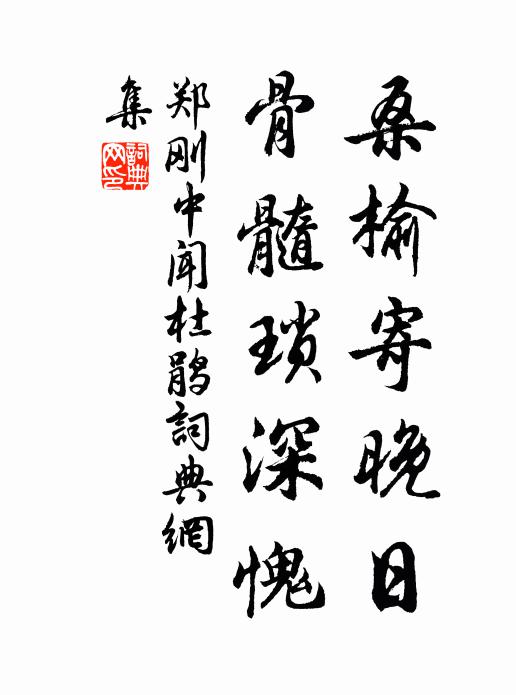 桑榆寄晚日
骨髓琐深愧
郑刚中闻杜鹃詞典網
集
詞典网印